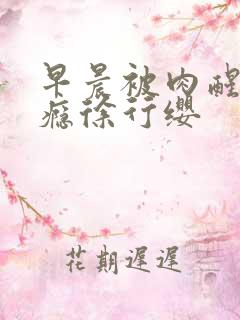 早晨被肉醒
瘾徐行缨
花期遲遲